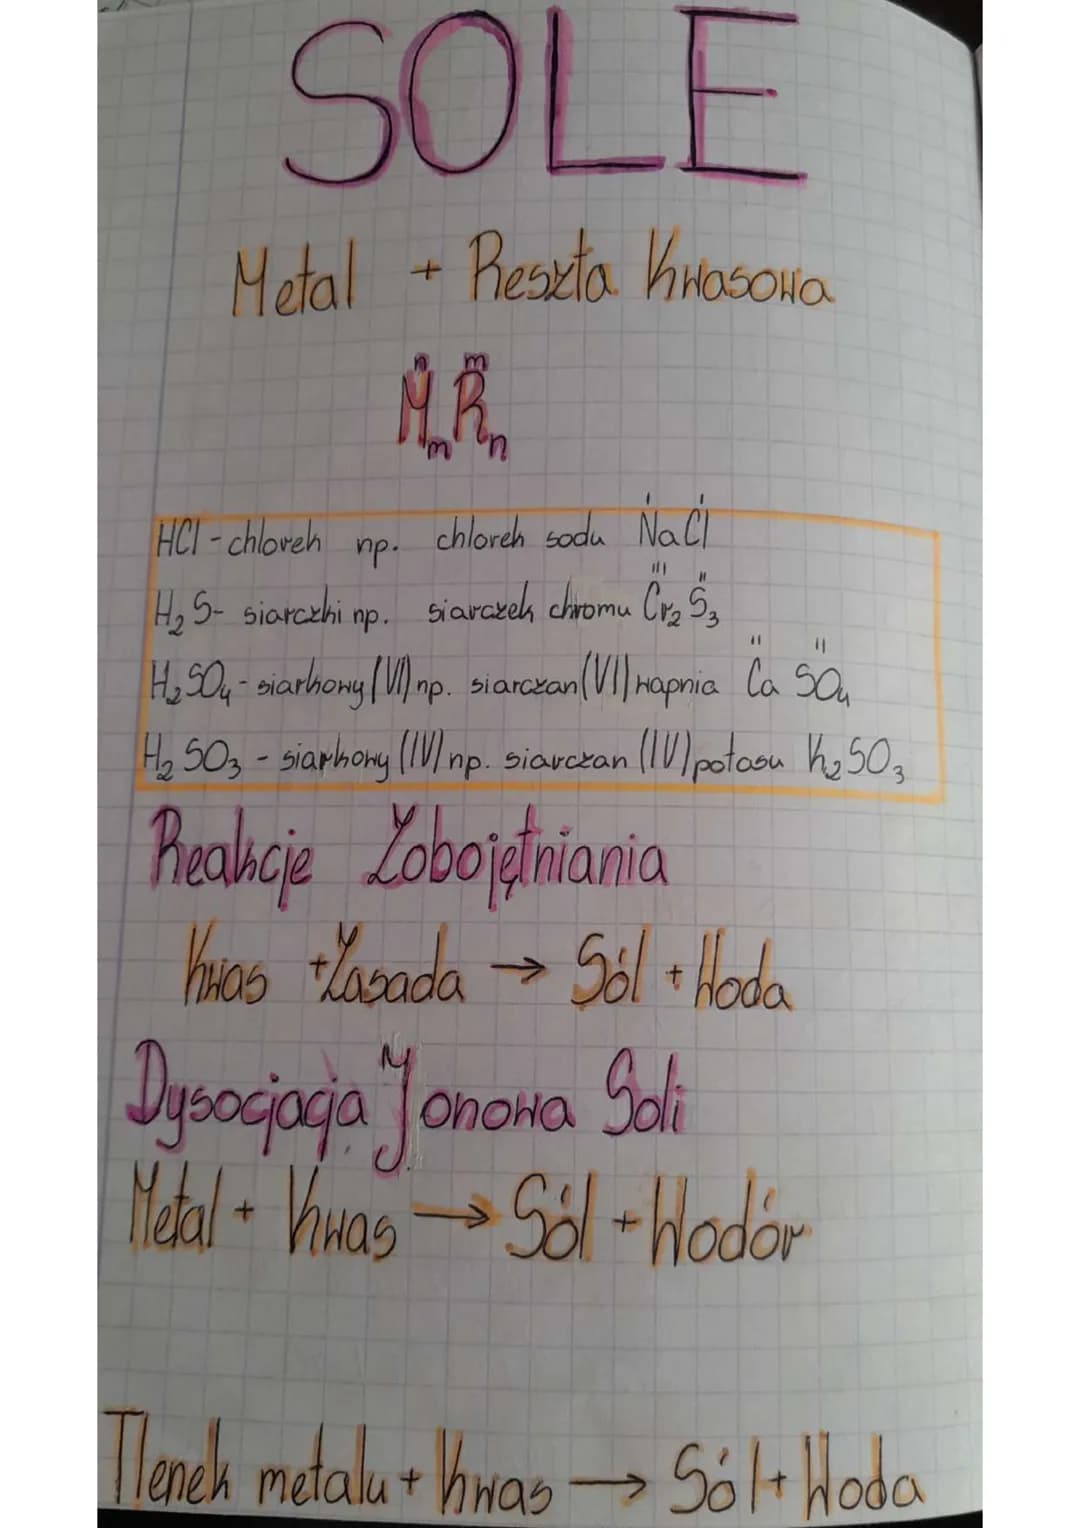 SOLE
Metal + Reszta Kwasowa
n m
MₘRₙ
HCl - chlorek np. chlorek sodu NaCl
H₂S - siarczki np. siarczek chromu Cr₂S₃
H₂SO₄ - siarkowy (VI) np. siarczan (VI) wapnia CaSO₄
H₂SO₃ - siarkowy (IV) np. siarczan (IV) potasu K₂SO₃
Reakcje Zobojętniania
Kwas + Zasada → Sól + Woda
Dysocjacja Jonowa Soli
Metal + Kwas → Sól + Wodór
Tlenek metalu + Kwas → Sól + Woda